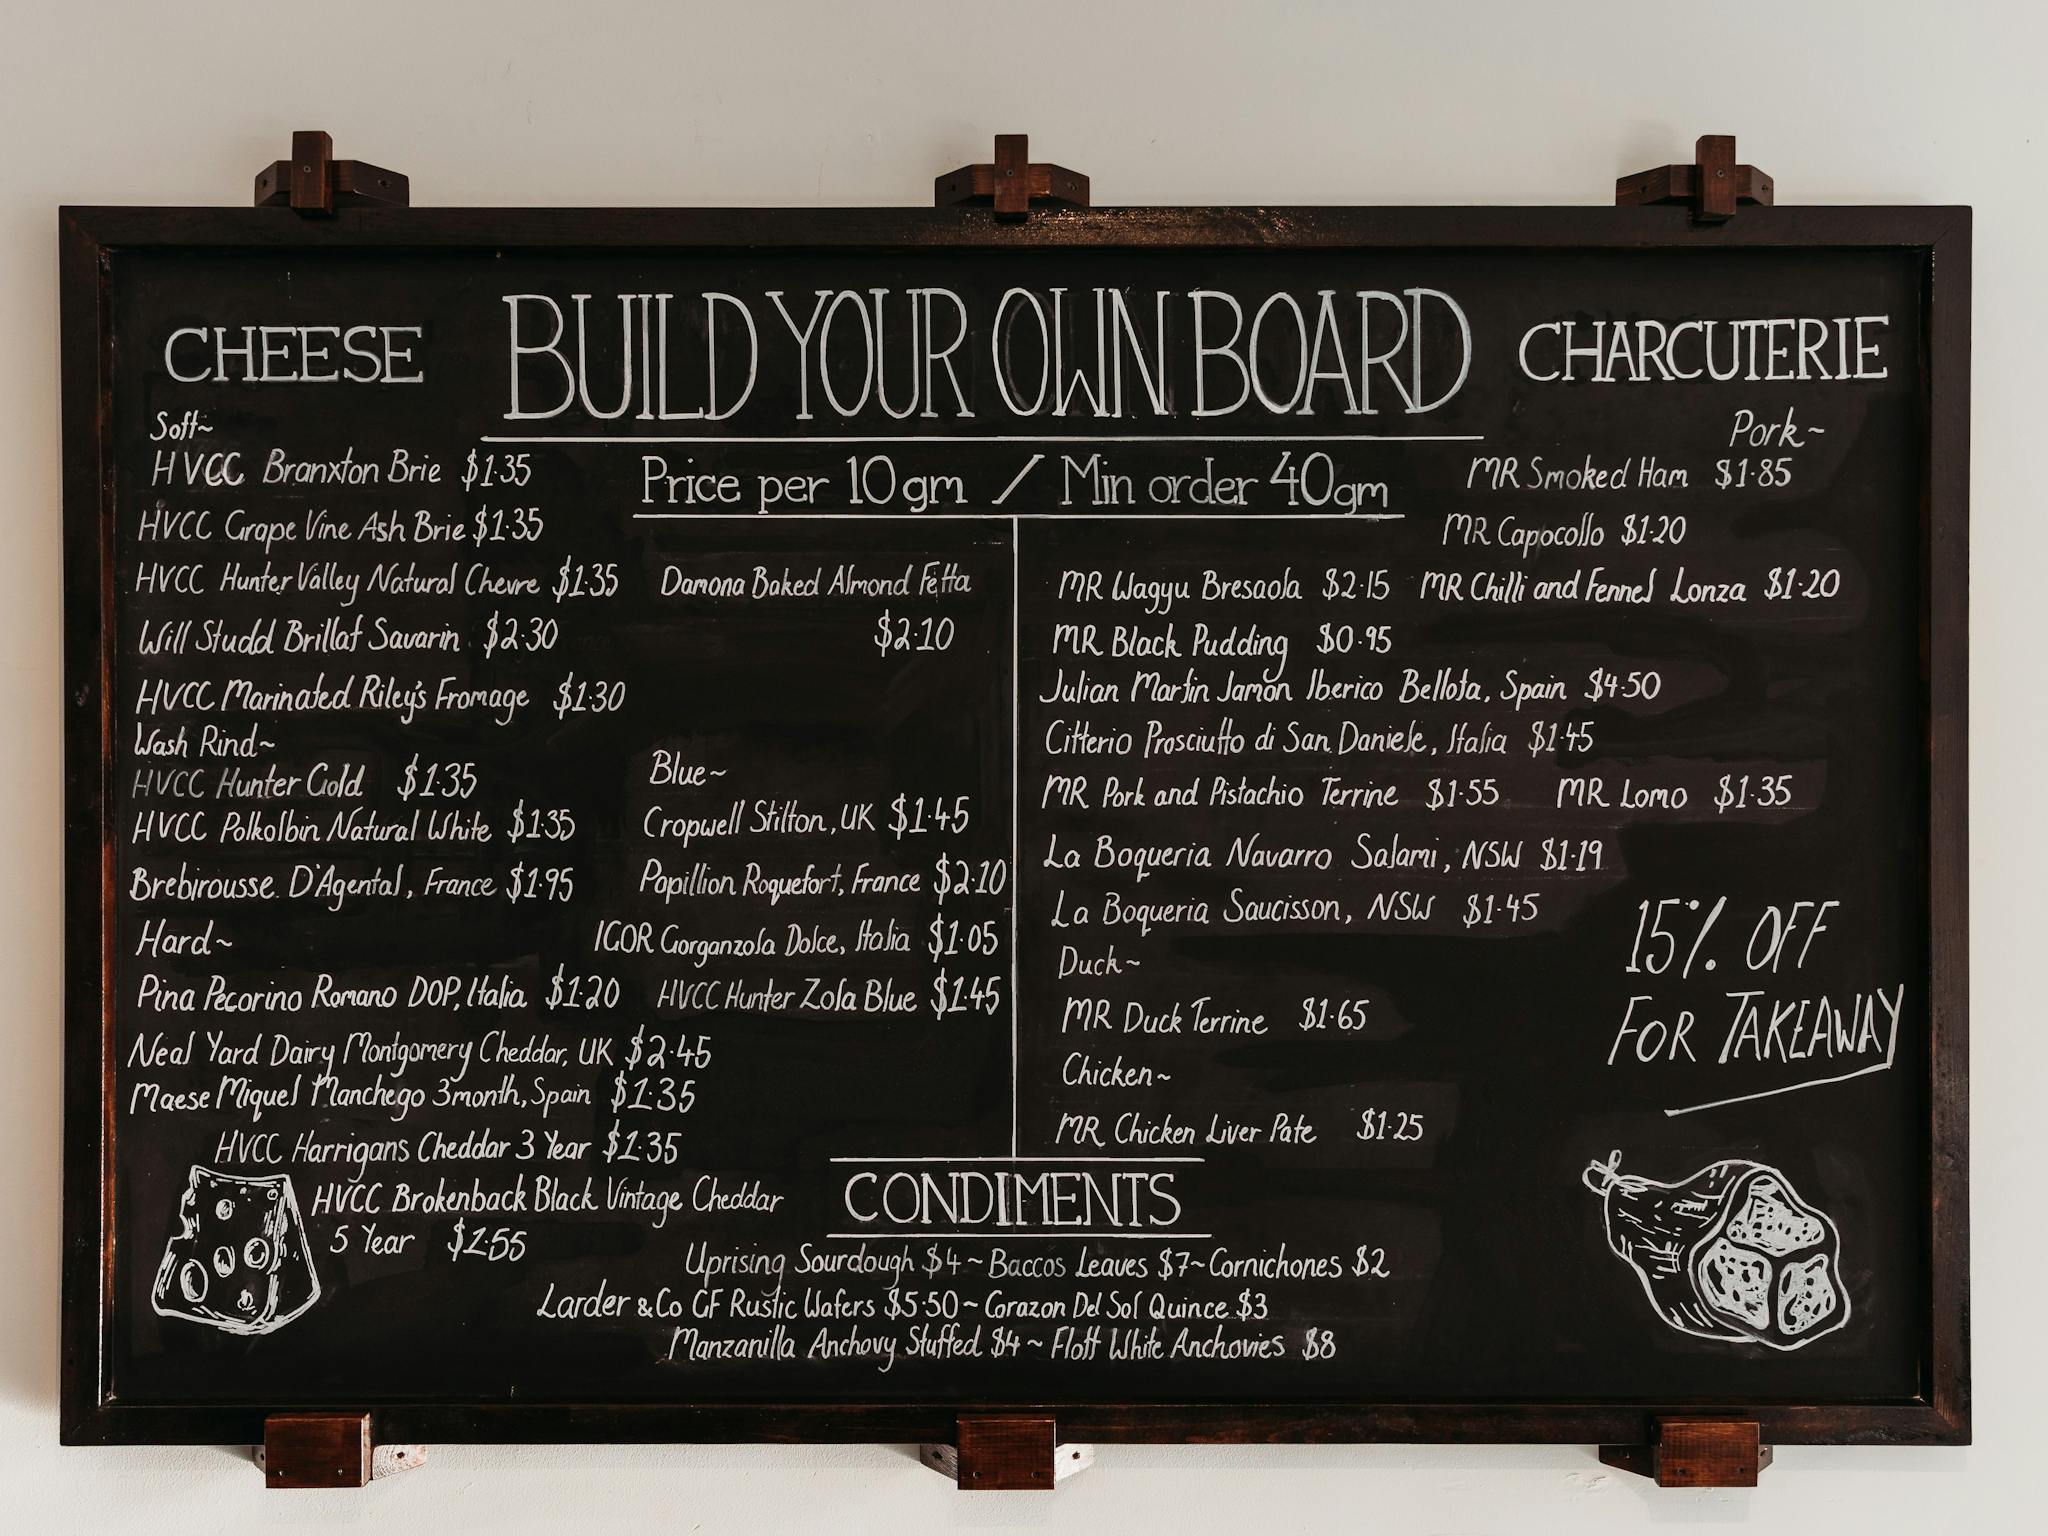 BUILD YOUR OWN BOARD
Price per 10gm / Min order 40gm
CHEESE
Soft~
HVCC Branxton Brie $1.35
HVCC Grape Vine Ash Brie $1.35
HVCC Hunter Valley Natural Chevre $1.35
Will Studd Brillat Savarin $2.30
HVCC Marinated Riley's Fromage $1.30
Wash Rind~
HVCC Hunter Gold $1.35
HVCC Polkolbin Natural White $1.35
Brebirousse D'Agental, France $1.95
Hard~
Pina Pecorino Romano DOP, Italia $1.20
Neal Yard Dairy Montgomery Cheddar, UK $2.45
Maese Miquel Manchego 3month, Spain $1.35
HVCC Harrigans Cheddar 3 Year $1.35
HVCC Brokenback Black Vintage Cheddar
5 Year $1.55
Damona Baked Almond Fetta
$2.10
Blue~
Cropwell Stilton, UK $1.45
Papillion Roquefort, France $2.10
IGOR Gorganzola Dolce, Italia $1.05
HVCC Hunter Zola Blue $1.45
CHARCUTERIE
Pork~
MR Smoked Ham $1.85
MR Capocollo $1.20
MR Wagyu Bresaola $2.15 MR Chilli and Fennel Lonza $1.20
MR Black Pudding $0.95
Julian Martin Jamon Iberico Bellota, Spain $4.50
Citterio Prosciutto di San Daniele, Italia $1.45
MR Pork and Pistachio Terrine $1.55 MR Lomo $1.35
La Boqueria Navarro Salami, NSW $1.19
La Boqueria Saucisson, NSW $1.45
Duck~
MR Duck Terrine $1.65
Chicken~
MR Chicken Liver Pate $1.25
15% OFF
FOR TAKEAWAY
CONDIMENTS
Uprising Sourdough $4~Baccos Leaves $7~Cornichones $2
Larder & Co GF Rustic Wafers $5.50~Corazon Del Sol Quince $3
Manzanilla Anchovy Stuffed $4~Flott White Anchovies $8